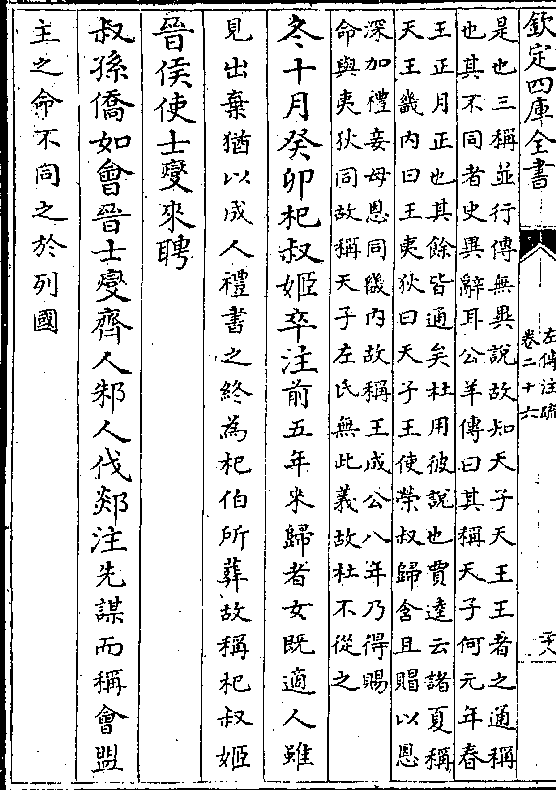 欽定四庫全書
左傳注疏
卷二十六
是也三稱並行傳無異說故知天子天王王者之通稱
也其不同者史異辭耳公羊傳曰其稱天子何元年春
王正月正也其餘皆通矣杜用彼說也賈逵云諸夏稱
天王畿内曰王夷狄曰天子王使榮叔歸含且賵以恩
深加禮妾母恩同畿内故稱王成公八年乃得賜
命與夷狄同故稱天子左氏無此義故杜不從之
冬十月癸卯杞叔姬卒注前五年來歸者女既適人雖
見出棄猶以成人禮書之終為杞伯所葬故稱杞叔姬
晉侯使士燮來聘
叔孫僑如會晉士燮齊人邾人伐郯注先謀而稱會盟
主之命不同之於列國